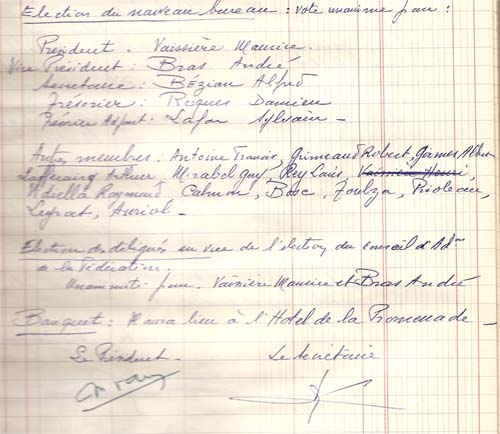 Election du nouveau bureau : vote unanime pour :
Président . Vaissière Maurice .
Vice Président : Bras André
Secrétaire : Bézian Alfred
Trésorier : Roques Damien
Trésorier Adjoint . Lafon Sylvain -
Autres membres : Antoine Francis, Grimeaud Robert, Girmes Albert
Arthur Mirabel Guy, Rey Louis, Vaissière Henri,
Vidiella Raymond Calmon, Bosc, Foulza, Rioleau,
Legrat, Auriol -
Election des délégués en vue de l'élection du Conseil d'Adon
de la Fédération.
Unanimité pour . Vaissière Maurice et Bras André
Banquet : Il aura lieu à l'Hotel de la Promenade -
Le Président - Le Secrétaire